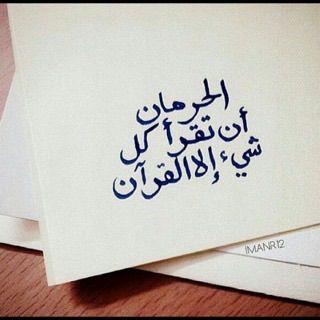 الحرمان
أن تقرأ كل
شيء إلا القرآن
IMANR12